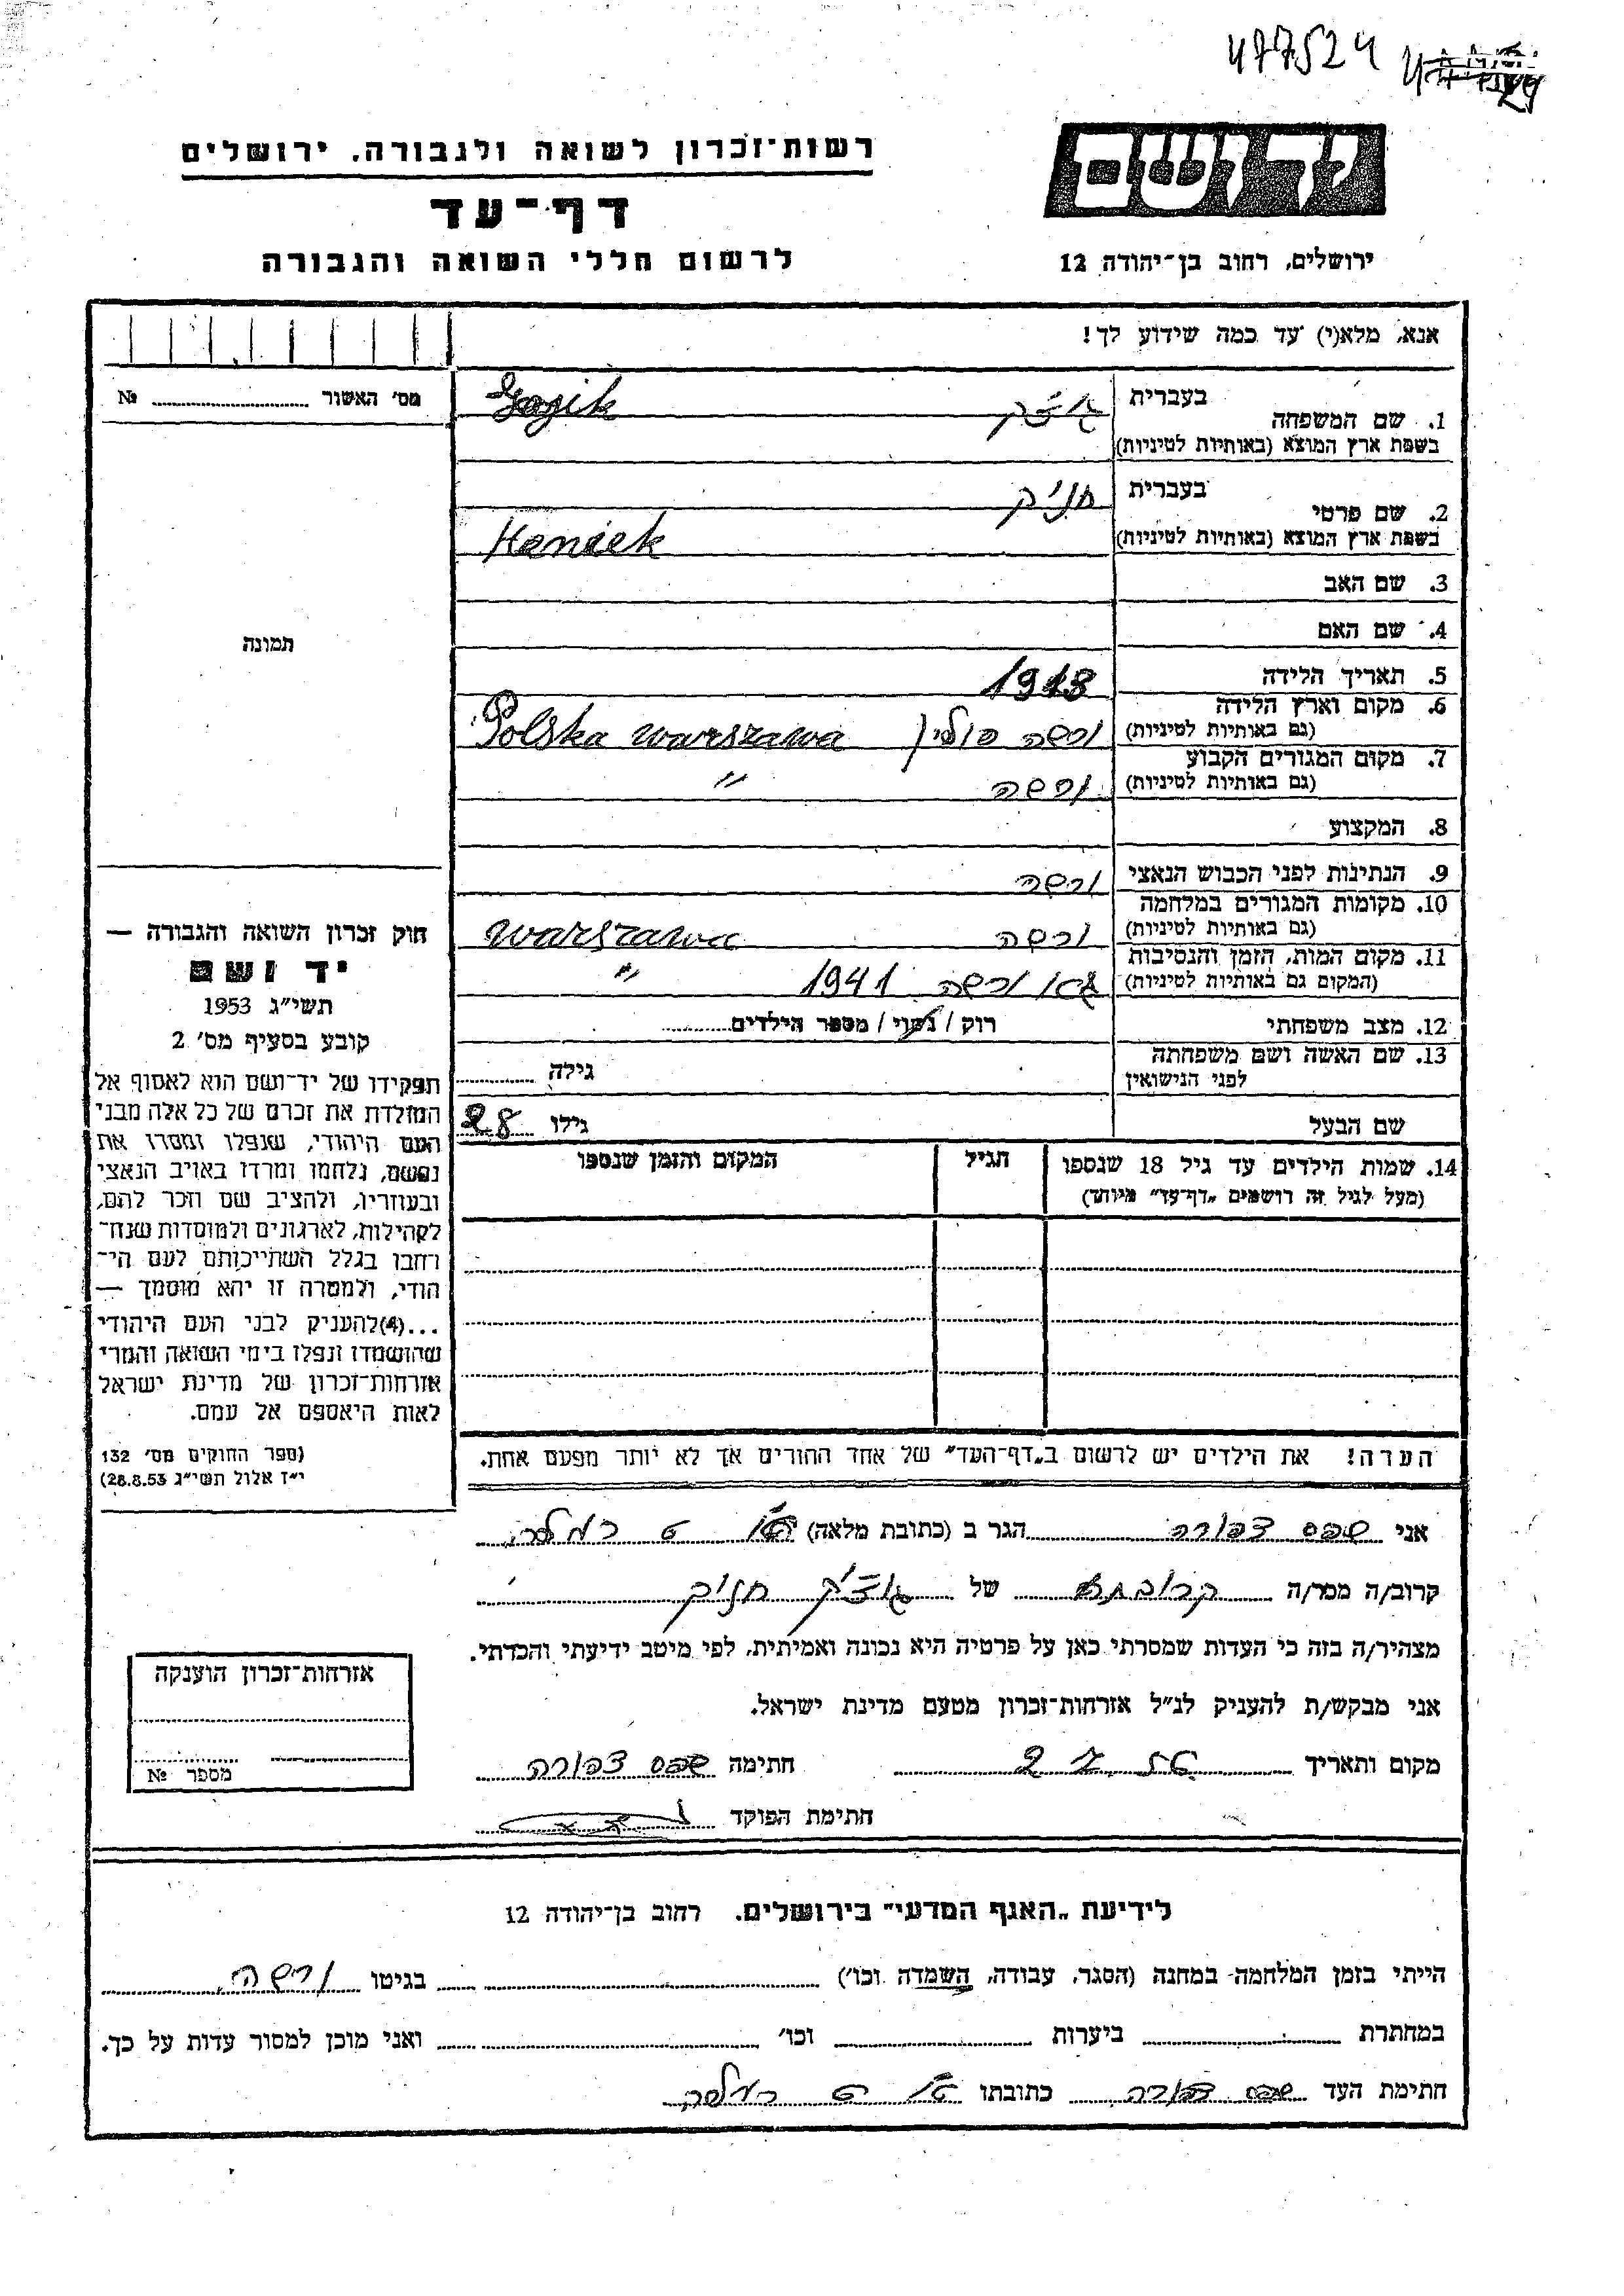 477524
יד ושם
רשות־זכרון לשואה ולגבורה, ירושלים
דף־עד
לרשום חללי השואה והגבורה
ירושלים, רחוב בן־יהודה 12
אנא, מלא(י) עד כמה שידוע לך!
מס' האשור № ........
1. שם המשפחה
בעברית
בשפת ארץ המוצא (באותיות לטיניות)
2. שם פרטי
בעברית חניק
בשפת ארץ המוצא (באותיות לטיניות) Heniek
3. שם האב
4. שם האם
תמונה
5. תאריך הלידה 1913
6. מקום וארץ הלידה
(גם באותיות לטיניות) ורשה פולין Polska Warszawa
7. מקום המגורים הקבוע
(גם באותיות לטיניות) ורשה "
8. המקצוע
9. הנתינות לפני הכבוש הנאצי ורשה
10. מקומות המגורים במלחמה
(גם באותיות לטיניות) ורשה Warszawa
11. מקום המות, הזמן והנסיבות
(המקום גם באותיות לטיניות) ורשה 1941 "
12. מצב משפחתי רוק / נשוי / מספר הילדים........
13. שם האשה ושם משפחתה
לפני הנישואין גילה ........
שם הבעל גילו 28
14. שמות הילדים עד גיל 18 שנספו
(מעל לגיל זה רושמים „דף־עד" מיוחד)
הגיל
המקום והזמן שנספו
הערה! את הילדים יש לרשום ב„דף־העד" של אחד ההורים אך לא יותר מפעם אחת.
חוק זכרון השואה והגבורה —
יד ושם
תשי"ג 1953
קובע בסעיף מס' 2
תפקידו של יד־ושם הוא לאסוף אל
המולדת את זכרם של כל אלה מבני
העם היהודי, שנפלו ומסרו את
נפשם, נלחמו ומרדו באויב הנאצי
ובעוזריו, ולהציב שם וזכר להם,
לקהילות, לארגונים ולמוסדות שנח־
רחבו בגלל השתייכותם לעם הי־
הודי, ולמטרה זו יהא מוסמך —
...(4)להעניק לבני העם היהודי
שהושמדו ונפלו בימי השואה והמרי
אזרחות־זכרון של מדינת ישראל
לאות היאספם אל עמם.
(ספר החוקים מס' 132
י"ז אלול תשי"ג 28.8.53)
אני שפס צפורה הגר ב (כתובת מלאה)
קרוב/ה מכר/ה קרובתו של חניק
מצהיר/ה בזה כי העדות שמסרתי כאן על פרטיה היא נכונה ואמיתית, לפי מיטב ידיעתי והכרתי.
אני מבקש/ת להעניק לנ"ל אזרחות־זכרון מטעם מדינת ישראל.
מקום ותאריך חתימה שפס צפורה
חתימת הפוקד
אזרחות־זכרון הוענקה
מספר №
לידיעת „האגף המדעי" בירושלים. רחוב בן־יהודה 12
הייתי בזמן המלחמה במחנה (הסגר, עבודה, השמדה וכו') ........ בגיטו ורשה
במחתרת ........ ביערות ........ וכו' ........ ואני מוכן למסור עדות על כך.
חתימת העד שפס צפורה כתובתו